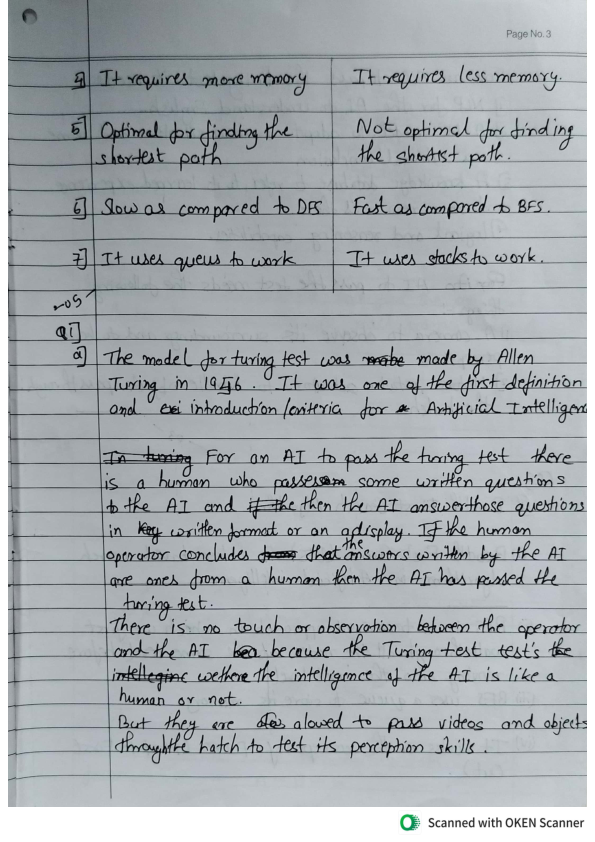 Page No. 3
4] It requires more memory | It requires less memory.
5] Optimal for finding the | Not optimal for finding
shortest path | the shortest path.
6] Slow as compared to DFS | Fast as compared to BFS.
7] It uses queus to work | It uses stacks to work.
Q1]
a] The model for turing test was made by Allen
Turing in 1956. It was one of the first definition
and introduction/criteria for Artificial Intelligenc
In turing For an AI to pass the turing test there
is a human who passes some written questions
to the AI and if the then the AI answer those questions
in written format or on a display. If the human
operator concludes that the answers written by the AI
are ones from a human then the AI has passed the
turing test.
There is no touch or observation between the operator
and the AI because the Turing test test's the
wethere the intelligence of the AI is like a
human or not.
But they are alowed to pass videos and objects
through the hatch to test its perception skills.
Scanned with OKEN Scanner